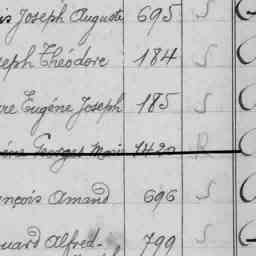 is Joseph Auguste 695 S
seph Théodore 184 S
re Eugéne Joseph 185 S
éne Georges Marie 1420 R
nçois Amand 696 S
ouard Alfred- 799 S